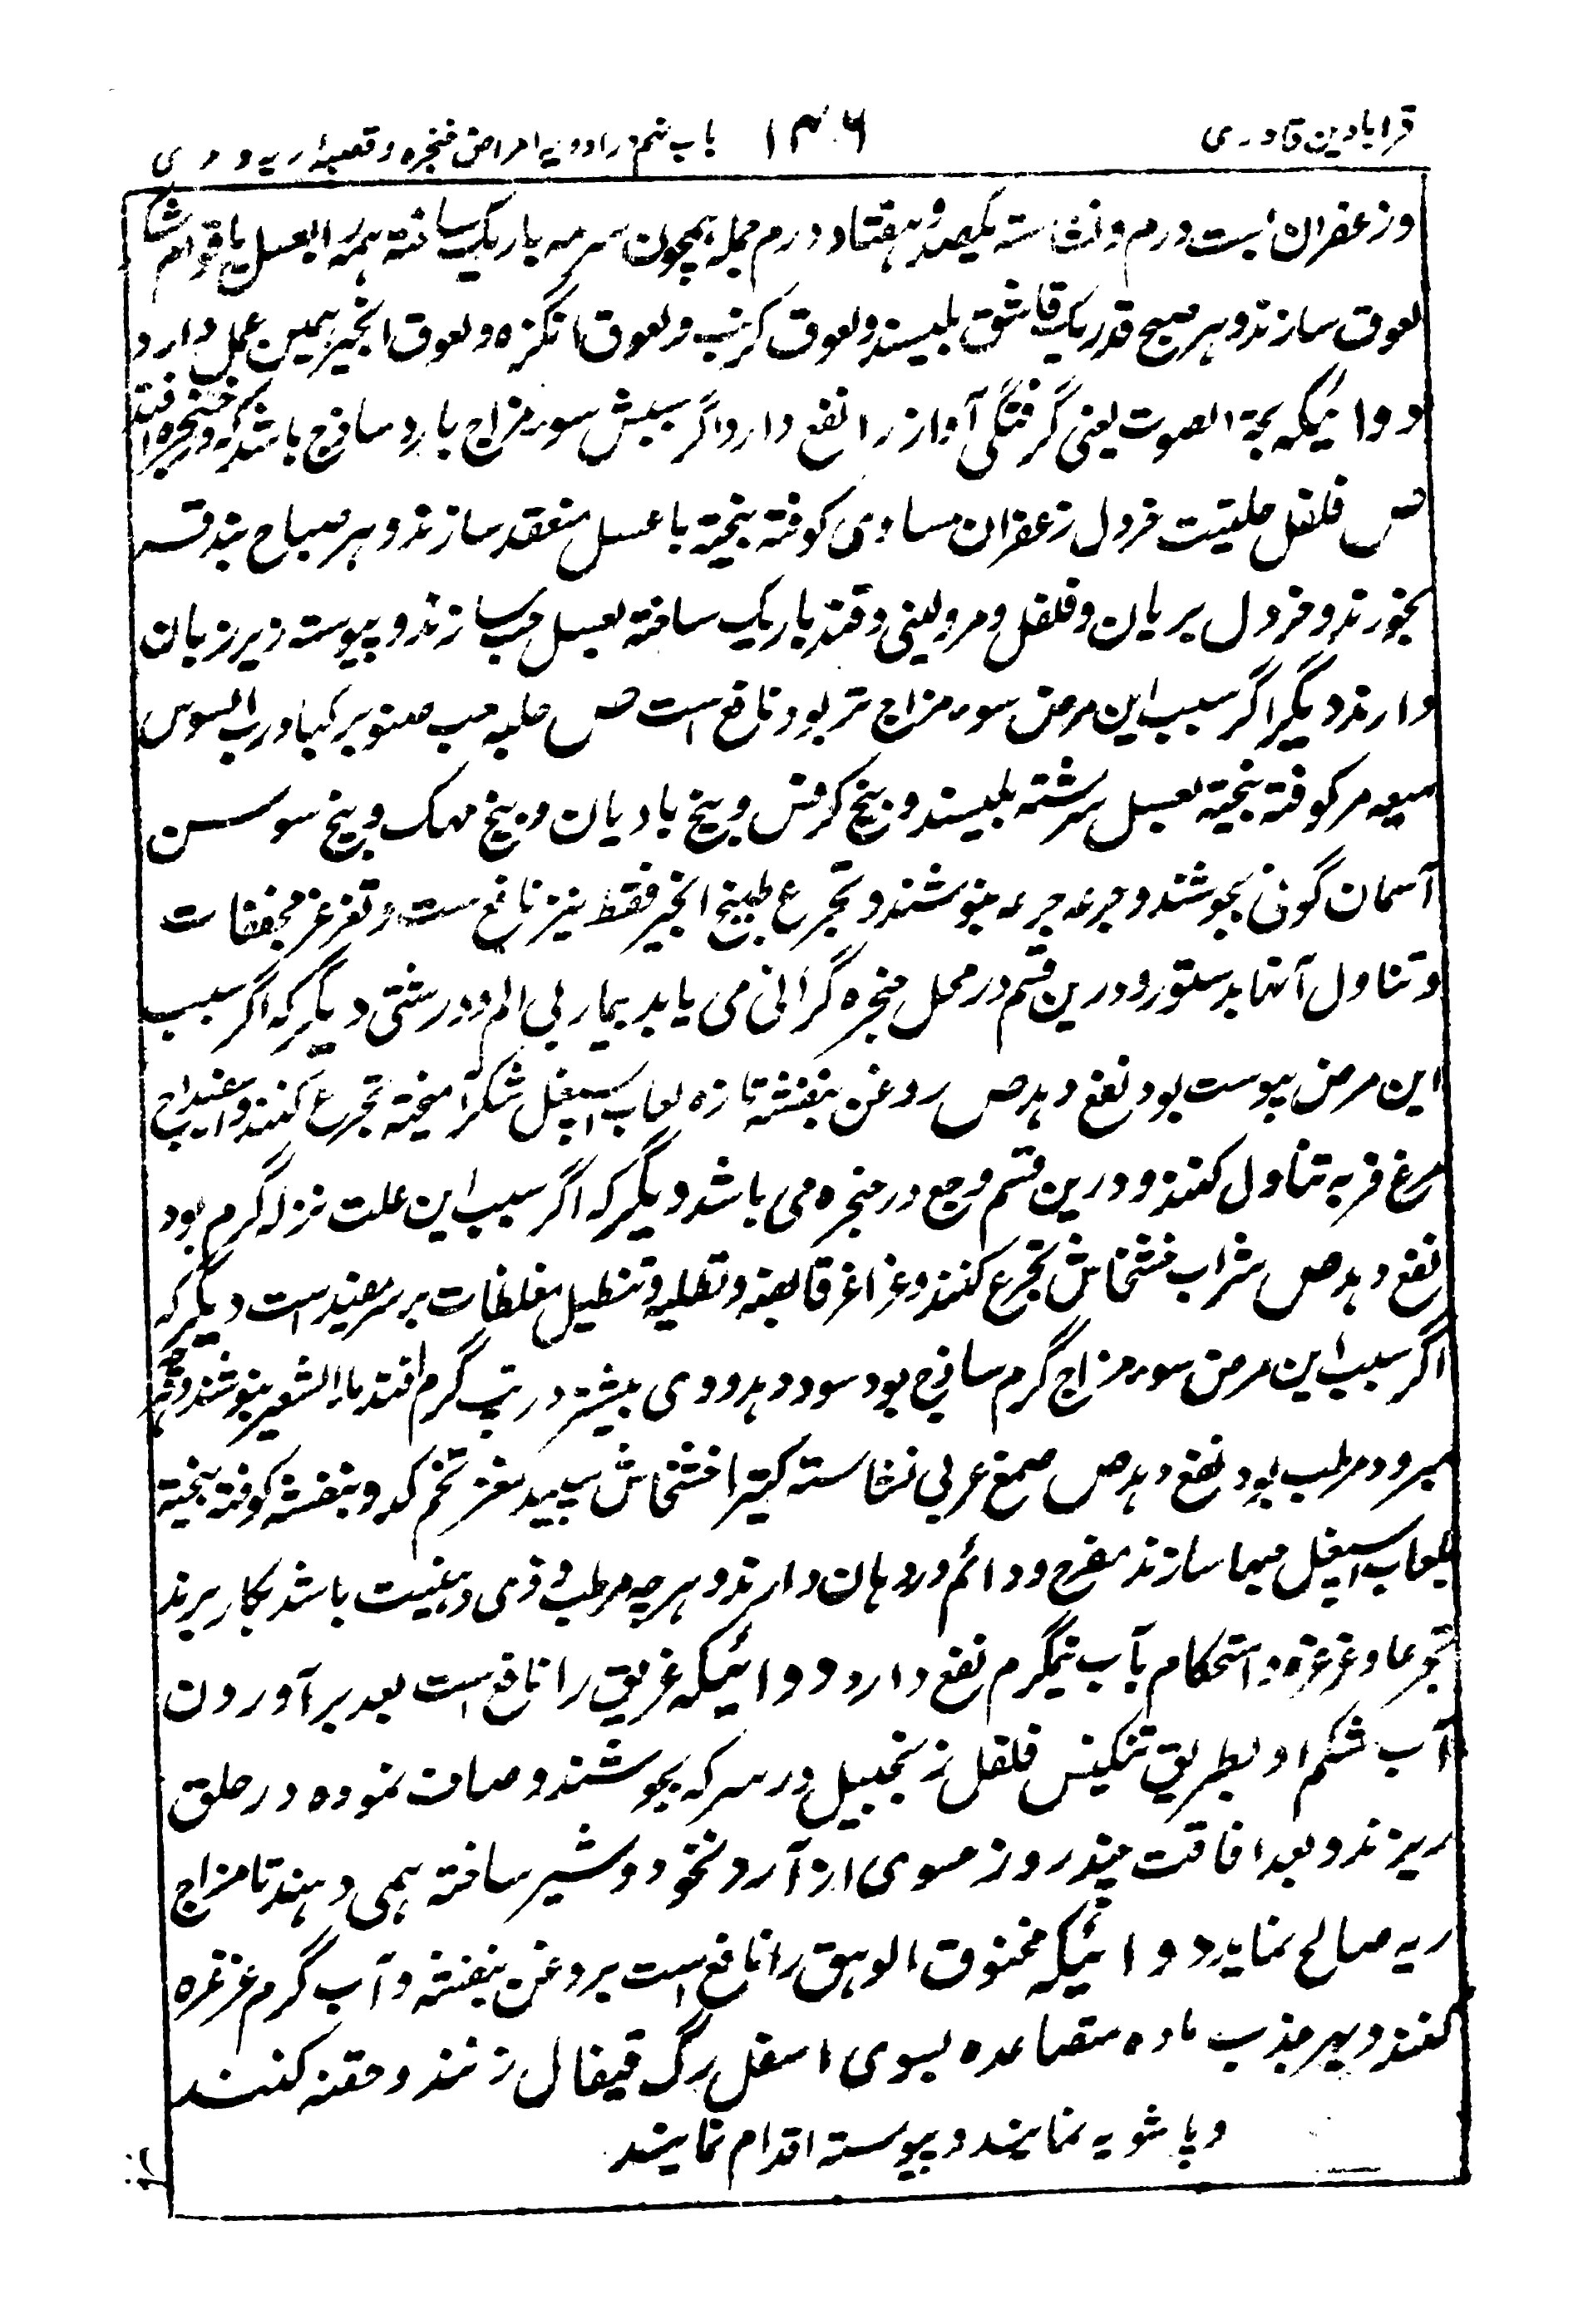 قرابادین قادری ۱۴۶ باب نهم در ادویه امراض حنجره و قصبهٔ ریه و مری
وزعفران بست درم و نشاسته یکصد و هفتاد درم جمله همچون سرمه باریک ساخته همه را بعسل با قوام
لعوق سازند و هر صبح قدر یک قاشق بلیسند و لعوق کرنب و لعوق انگزه و لعوق انجیر همین عمل دارد
دوائیکه بحة الصوت یعنی گرفتگی آواز را نفع دارد اگر سببش سوء مزاج بارد ساذج باشد که در حنجره افتد
ص فلفل حلتیت خردل زعفران مساوی کوفته بیخته با عسل منعقد سازند و هر صباح بندقه
بخورند و خردل بریان و فلفل و مر و لبنی و قند باریک ساخته بعسل حب سازند و پیوسته زیر زبان
دارند دیگر اگر سبب این مرض سوء مزاج تر بود نافع است ص حلبه حب صنوبر کبار رب السوس
میعه مر کوفته بیخته بعسل سرشته بلیسند و بیخ کرفس و بیخ بادیان و بیخ مهک و بیخ سوسن
آسمان گونی بجوشند و جرعه جرعه بنوشند و تجرع طبیخ انجیر فقط نیز نافع ست و تغرغر مجففات
و تناول آنها بدستور و درین قسم در محل حنجره گرانی می یابد بیمار بی الم و درشتی دیگر که اگر سبب
این مرض یبوست بود نفع دهد ص روغن بنفشه تازه لعاب اسپغل شکر آمیخته تجرع کنند و اسفیدباج
مرغ فربه تناول کنند و درین قسم وجع در حنجره می باشد دیگر که اگر سبب این علت نزله گرم بود
نفع دهد ص شراب خشخاش تجرع کنند و غراغر قابضه و تطلیه و تنطیل مغلظات بر سر مفید است دیگر که
اگر سبب این مرض سوء مزاج گرم ساذج بود سود دهد و وی بیشتر در تب گرم افتد ماء الشعیر بنوشند و هرچه
مبرد و مرطب بود نفع دهد ص صمغ عربی نشاسته کتیرا خشخاش سپید مغز تخم کدو بنفشه کوفته بیخته
بلعاب اسپغل حبها سازند مفرح و دائم در دهان دارند و هر چه مرطب و ذی دهنیت باشد بکار برند
تجرعا و غرغره و استحمام بآب نیمگرم نفع دارد دوائیکه غریق را نافع است بعد برآوردن
آب شکم او بطریق تنکیس فلفل زنجبیل در سرکه بجوشند و صاف نموده در حلق
ریزند و بعد افاقت چند روز حسوی از آرد نخود و شیر ساخته همی دهند تا مزاج
ریه صالح نماید دوائیکه مخنوق الوهق را نافع است بروغن بنفشه و آب گرم غرغره
کنند و بهر جذب ماده متصاعده بسوی اسفل رگ قیفال زنند و حقنه کنند
و پاشویه نمایند و پیوسته اقدام نمایند